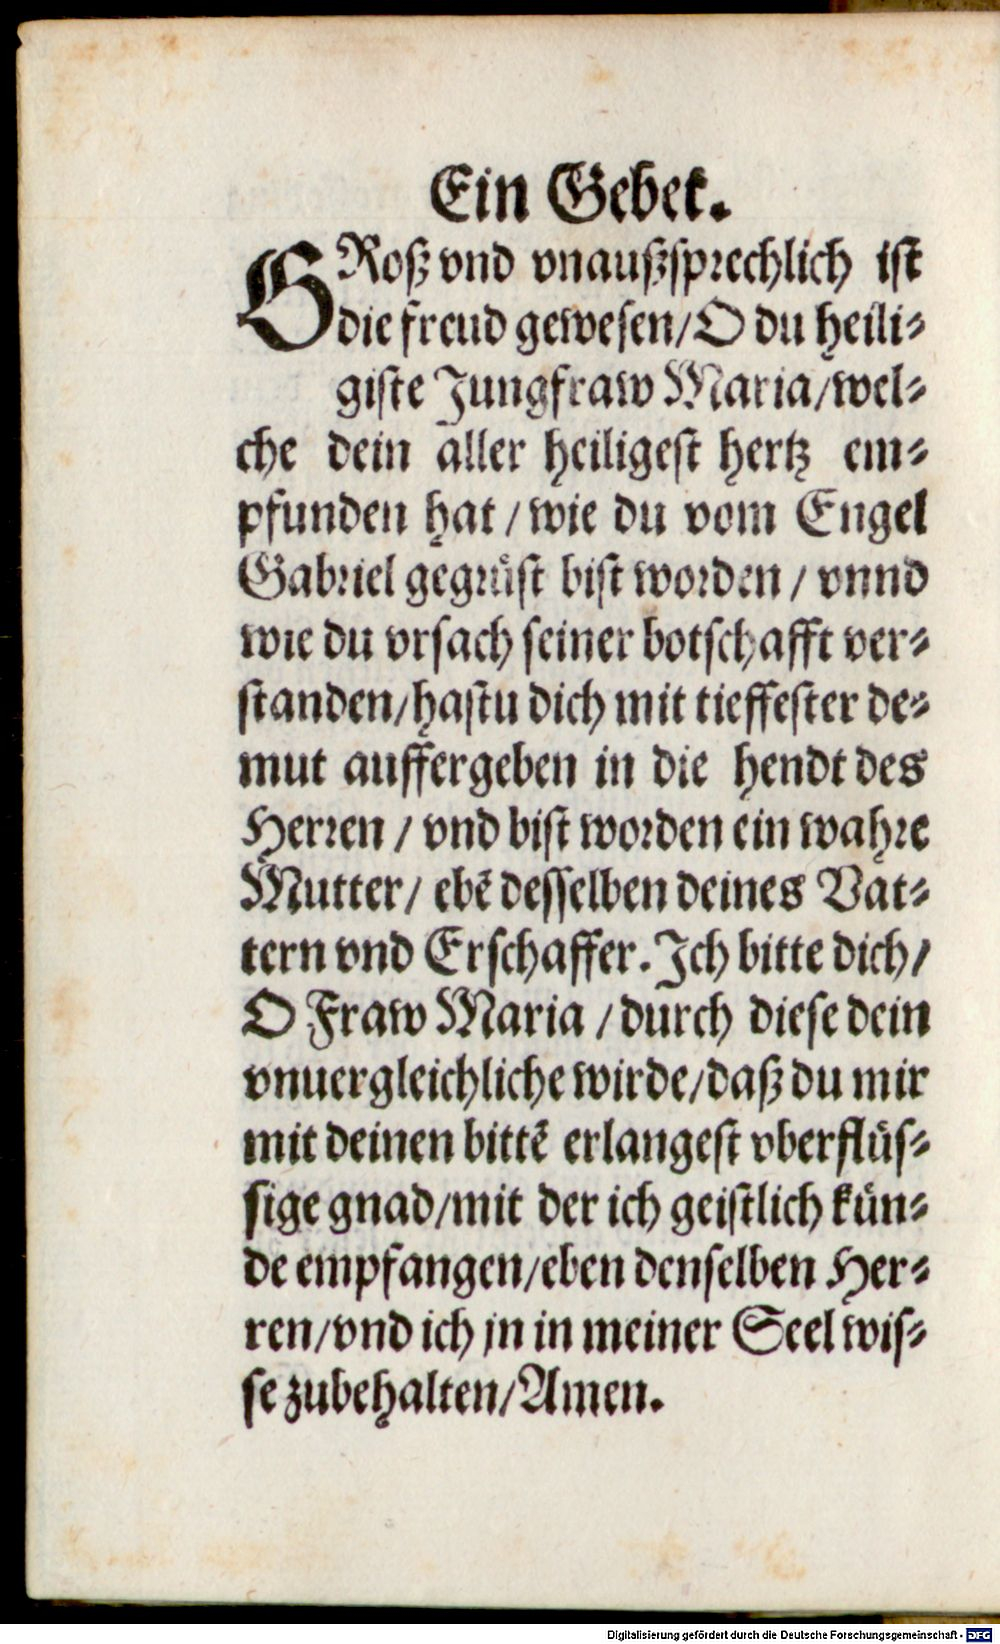 Ein Gebet.
GRoß vnd vnaußsprechlich ist
die freud gewesen/O du heili⸗
giste Jungfraw Maria/wel⸗
che dein aller heiligest hertz em⸗
pfunden hat / wie du vom Engel
Gabriel gegrüst bist worden / vnnd
wie du vrsach seiner botschafft ver⸗
standen/hastu dich mit tieffester de⸗
mut auffergeben in die hendt des
Herren / vnd bist worden ein wahre
Mutter/ ebē desselben deines Vat⸗
tern vnd Erschaffer. Ich bitte dich/
O Fraw Maria / durch diese dein
vnuergleichliche wirde/daß du mir
mit deinen bittē erlangest vberflüs⸗
sige gnad/mit der ich geistlich kün⸗
de empfangen/eben denselben Her⸗
ren/vnd ich jn in meiner Seel wis⸗
se zubehalten/Amen.
Digitalisierung gefördert durch die Deutsche Forschungsgemeinschaft - DFG